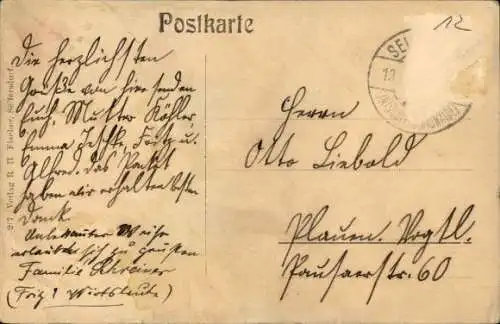 Postkarte
12
Die herzlichsten
Grüße von hier senden
Euch. Mutter Köhler,
Emma Jeschke, Fritz u.
Alfred. Das Packet
haben wir erhalten besten
Dank.
Unbekannter Weise
erlaubt sich zu grüssen
Familie Schreiner
(Fritz' Wirtsleute)
Herrn
Otto Liebold
Plauen. Vogtl.
Pausaerstr. 60
Verlag R. H.